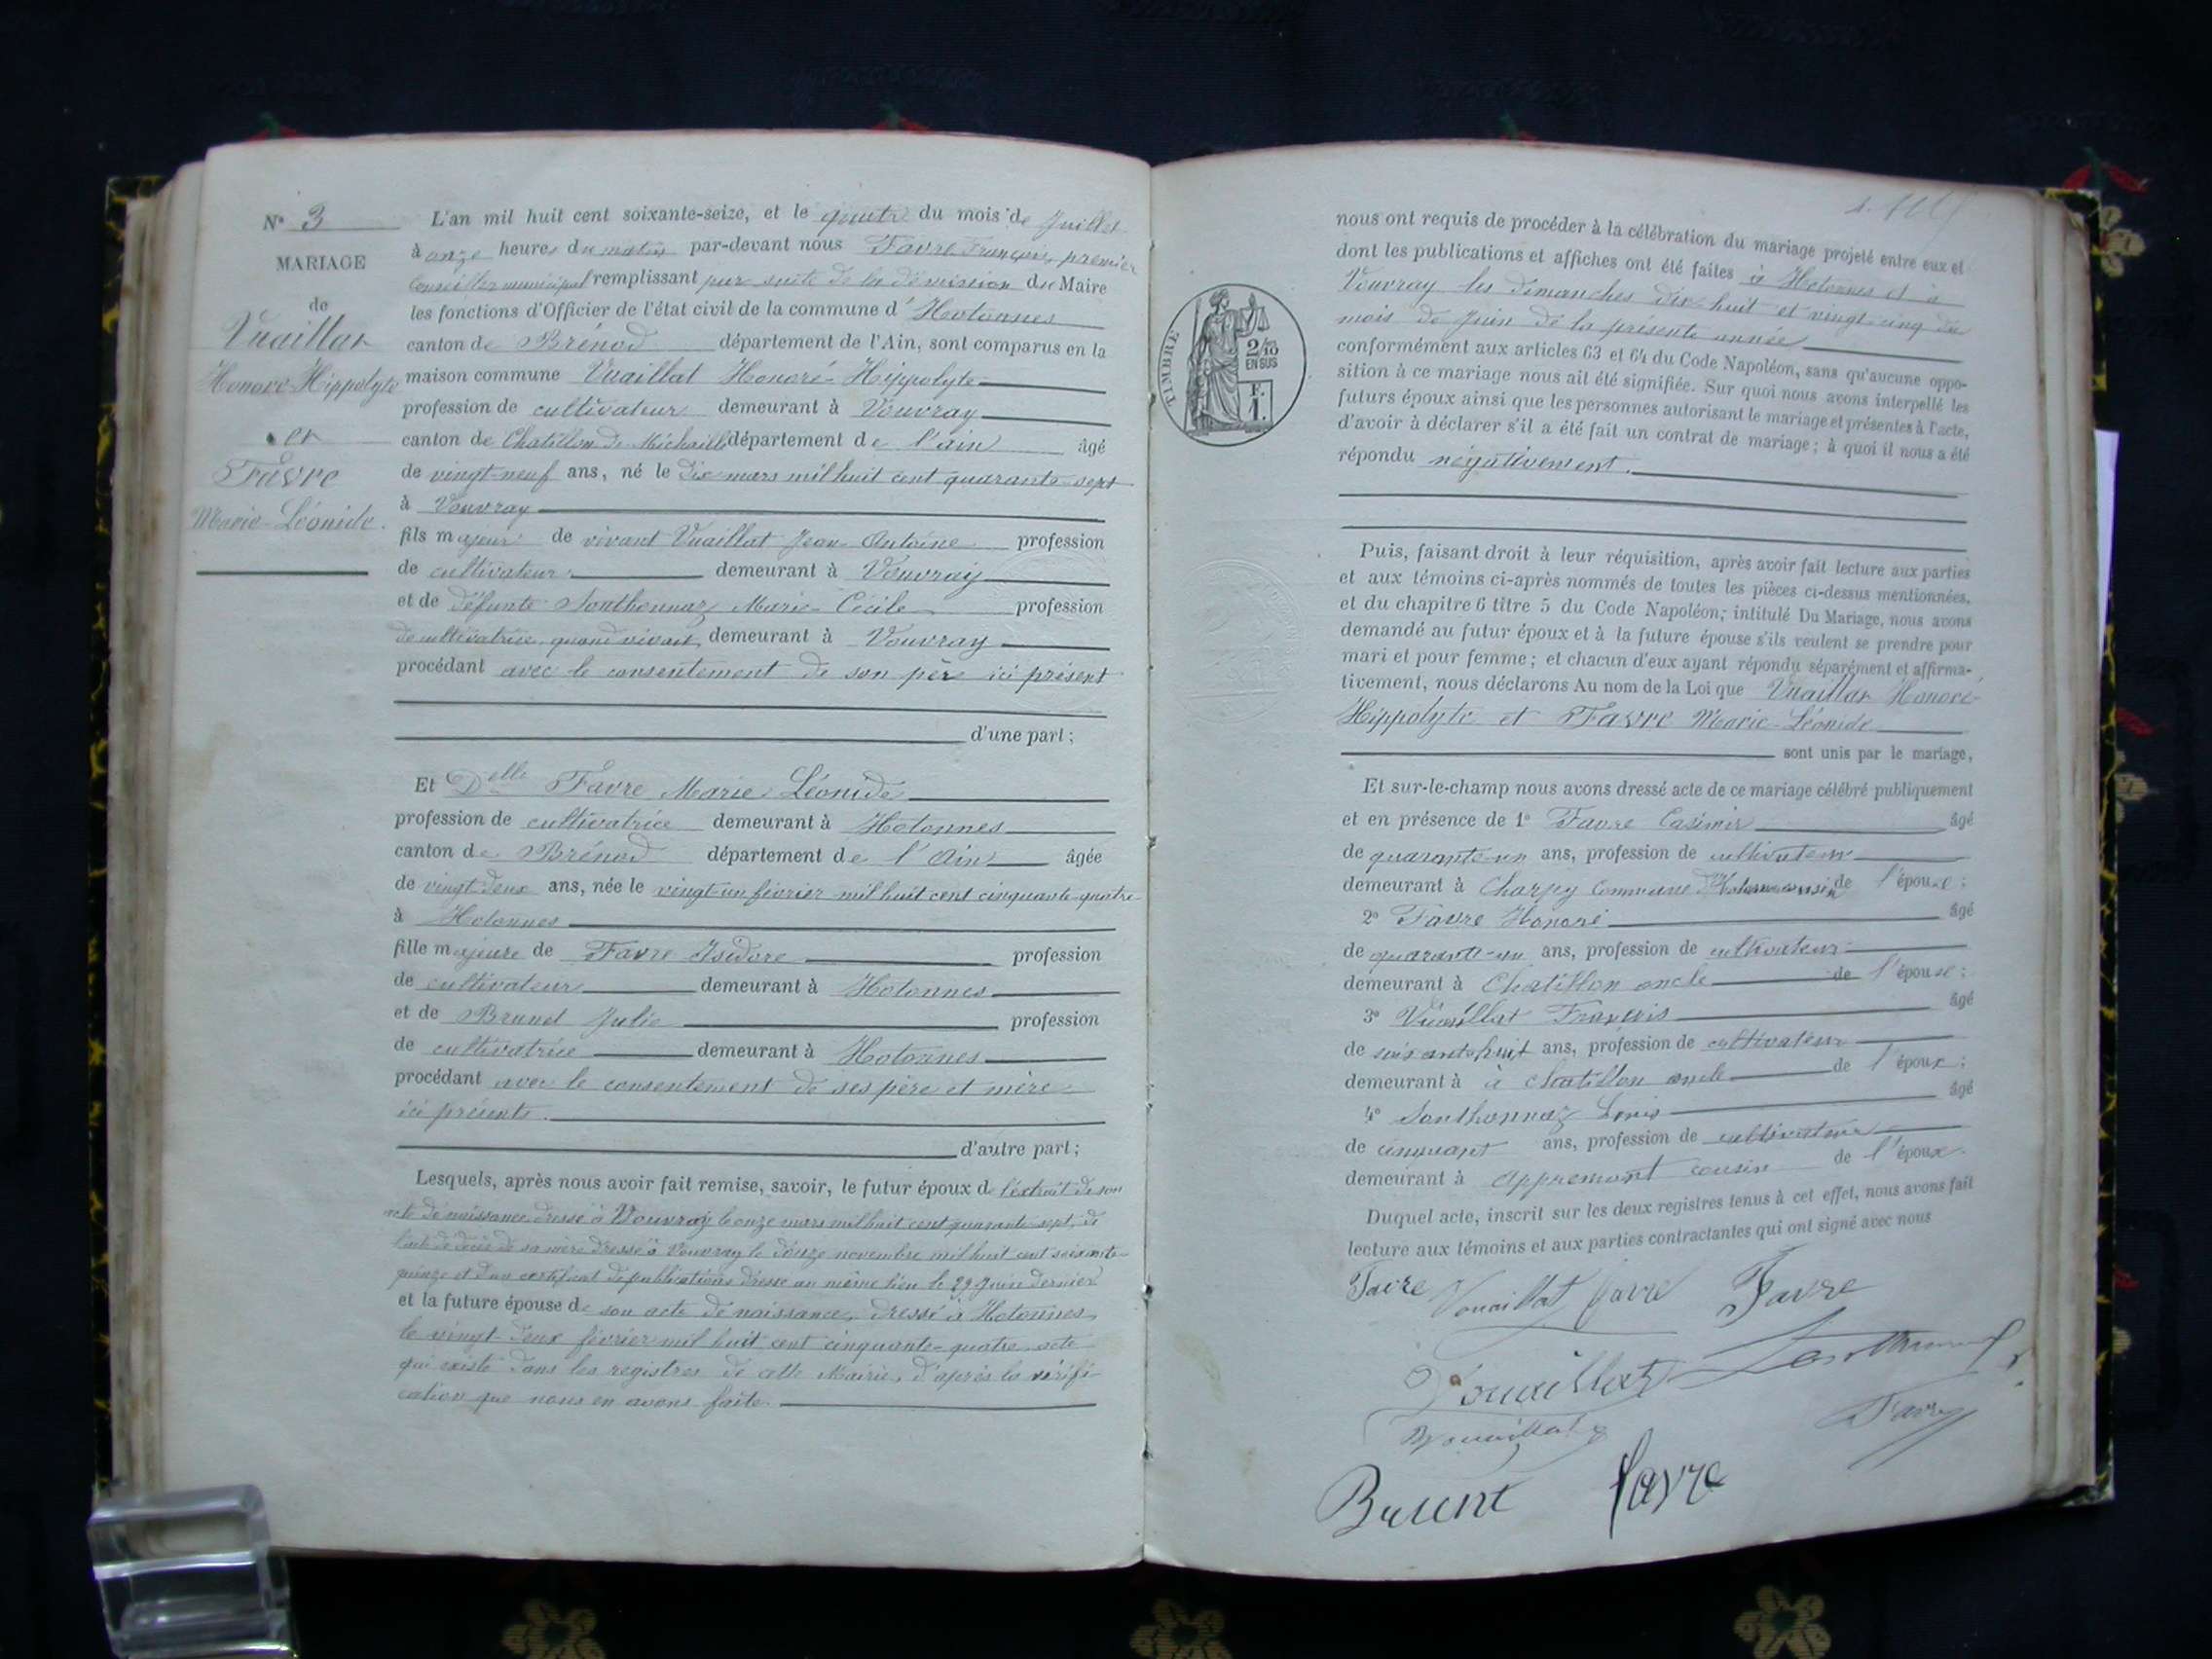 N° 3
MARIAGE
de
Vuaillat
Honoré-Hippolyte
et
Favre
Marie-Léonide.
L'an mil huit cent soixante-seize, et le quatre du mois de Juillet
à onze heures du matin par-devant nous Favre François, premier
Conseiller municipal remplissant par suite de la démission du Maire
les fonctions d'Officier de l'état civil de la commune d'Hotonnes
canton de Brénod département de l'Ain, sont comparus en la
maison commune Vuaillat Honoré-Hippolyte
profession de cultivateur demeurant à Vouvray
canton de Chatillon de Michaille département de l'ain âgé
de vingt-neuf ans, né le dix mars mil huit cent quarante-sept
à Vouvray
fils majeur de vivant Vuaillat Jean-Antoine profession
de cultivateur demeurant à Vouvray
et de défunte Sonthonnaz Marie-Cécile profession
de cultivatrice, quand vivait, demeurant à Vouvray
procédant avec le consentement de son père ici présent
d'une part;
Et Delle Favre Marie Léonide
profession de cultivatrice demeurant à Hotonnes
canton de Brénod département de l'Ain âgée
de vingt-deux ans, née le vingt-un février mil huit cent cinquante-quatre
à Hotonnes
fille majeure de Favre Isidore profession
de cultivateur demeurant à Hotonnes
et de Brunet Julie profession
de cultivatrice demeurant à Hotonnes
procédant avec le consentement de ses père et mère
ici présents.
d'autre part;
Lesquels, après nous avoir fait remise, savoir, le futur époux de l'extrait de son
acte de naissance dressé à Vouvray le onze mars mil huit cent quarante-sept, de
l'acte de décès de sa mère dressé à Vouvray le douze novembre mil huit cent soixante-
quinze et d'un certificat de publications dressé au même lieu le 29 Juin dernier
et la future épouse de son acte de naissance, dressé à Hotonnes,
le vingt-deux février mil huit cent cinquante-quatre, acte
qui existe dans les registres de cette Mairie, d'après la vérifi-
cation que nous en avons faite.
TIMBRE
2/10
EN SUS
F.
1.
nous ont requis de procéder à la célébration du mariage projeté entre eux et
dont les publications et affiches ont été faites à Hotonnes et à
Vouvray les dimanches dix-huit et vingt-cinq du
mois de Juin de la présente année
conformément aux articles 63 et 64 du Code Napoléon, sans qu'aucune oppo-
sition à ce mariage nous ait été signifiée. Sur quoi nous avons interpellé les
futurs époux ainsi que les personnes autorisant le mariage et présentes à l'acte,
d'avoir à déclarer s'il a été fait un contrat de mariage; à quoi il nous a été
répondu négativement.
Puis, faisant droit à leur réquisition, après avoir fait lecture aux parties
et aux témoins ci-après nommés de toutes les pièces ci-dessus mentionnées,
et du chapitre 6 titre 5 du Code Napoléon; intitulé Du Mariage, nous avons
demandé au futur époux et à la future épouse s'ils veulent se prendre pour
mari et pour femme; et chacun d'eux ayant répondu séparément et affirma-
tivement, nous déclarons Au nom de la Loi que Vuaillat Honoré-
Hippolyte et Favre Marie-Léonide
sont unis par le mariage,
Et sur-le-champ nous avons dressé acte de ce mariage célébré publiquement
et en présence de 1° Favre Casimir âgé
de quarante-un ans, profession de cultivateur
demeurant à Charpy Commune d'Hotonnes cousin de l'épouse;
2° Favre Honoré âgé
de quarante-un ans, profession de cultivateur
demeurant à Chatillon oncle de l'épouse;
3° Vuaillat François âgé
de soixante huit ans, profession de cultivateur
demeurant à à Chatillon oncle de l'époux;
4° Sonthonnaz Louis âgé
de cinquant ans, profession de cultivateur
demeurant à appremont cousin de l'époux.
Duquel acte, inscrit sur les deux registres tenus à cet effet, nous avons fait
lecture aux témoins et aux parties contractantes qui ont signé avec nous
Favre Vouaillat favre Favre
Vouaillat
Vouaillat Favre
Brunt favre